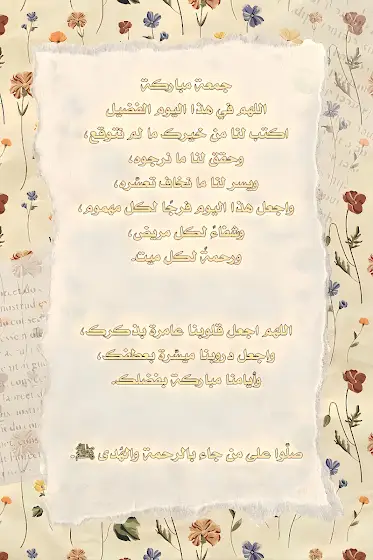 جمعة مباركة
اللهم في هذا اليوم الفضيل
اكتب لنا من خيرك ما لم نتوقع،
وحقق لنا ما نرجوه،
ويسر لنا ما نخاف تعسّره،
واجعل هذا اليوم فرجًا لكل مهموم،
وشفاءً لكل مريض،
ورحمةً لكل ميت.
اللهم اجعل قلوبنا عامرة بذكرك،
واجعل دروبنا ميسّرة بعطفك،
وأيامنا مباركة بفضلك.
صلّوا على من جاء بالرحمة والهُدى ﷺ.